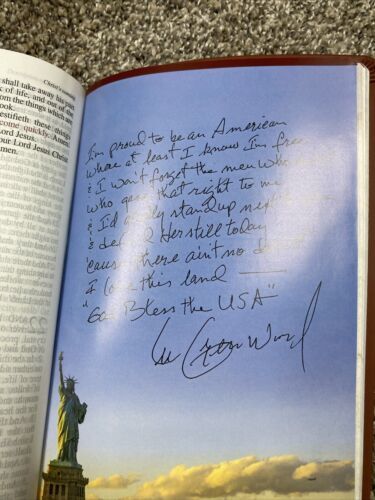 Christ's coming
shall take away his part
k of life, and out of the
rom the things which are
ook.
estifieth these things
come quickly. Amen.
ord Jesus.
our Lord Jesus Christ
men.
I'm proud to be an American
where at least I know I'm free
& I won't forget the men who
who gave that right to me
& I'd gladly stand up
& defend Her still today
'cause there ain't no
I love this land
"God Bless the USA"
Lee Greenwood